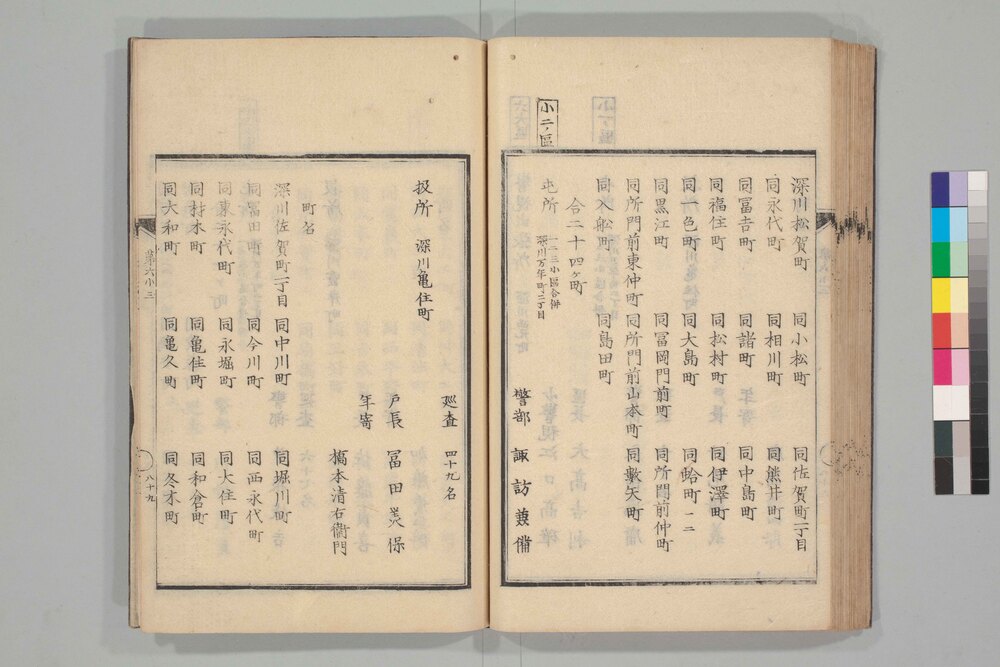 深川松賀町 同小松町 同佐賀町二丁目
同永代町 同相川町 同熊井町
同冨吉町 同諸町 同中島町
同福住町 同松村町 同伊澤町
同一色町 同大島町 同蛤町 一二
同黒江町 同冨岡門前町 同所門前仲町
同所門前東仲町 同所門前山本町 同數矢町
同入船町 同島田町
合二十四ヶ町
小二ノ區
屯所 一二三小區合併 深川万年町二丁目
警部 諏訪兼備
廵査 四十九名
扱所 深川亀住町
戸長 冨田美保
年寄 橋本清右衞門
町名
深川佐賀町一丁目 同中川町 同堀川町
同冨田町 同今川町 同西永代町
同東永代町 同永堀町 同大住町
同材木町 同亀住町 同和倉町
同大和町 同亀久町 同冬木町
第六小三
八十九